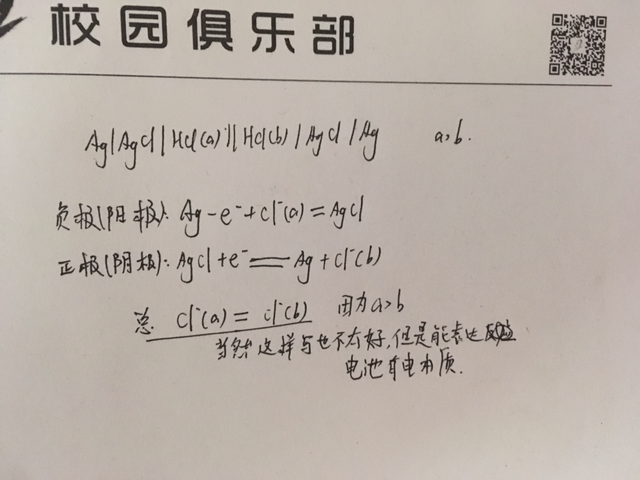 校园俱乐部
Ag|AgCl|HCl(a)||HCl(b)|AgCl|Ag a>b.
负极(阳极): Ag-e⁻+Cl⁻(a)=AgCl
正极(阴极): AgCl+e⁻=Ag+Cl⁻(b)
总. Cl⁻(a)=Cl⁻(b) 因为a>b
当然这样写也不太好,但是能表达反应
电池本质.